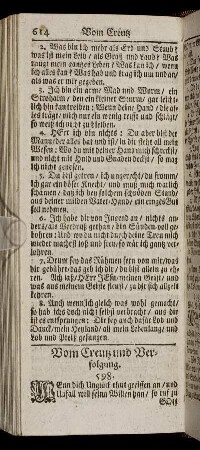 614 Vom Creutz
2. Was bin ich mehr als Erd und Staub?
was ist mein Leib / als Graß und Laub? Was
taugt mein gantzes Leben? Was kan ich / wenn
ich alles kan? Was hab und trag ich um und an /
als was er mir gegeben.
3. Ich bin ein arme Mad und Wurm / ein
Strohalm / den ein kleiner Sturm / gar leicht-
lich hin kan treiben: Wann deine Hand / die al-
les trägt / mich nur ein wenig trifft und schlägt /
so weiß ich nicht zu bleiben.
4. HErr ich bin nichts: Du aber bist der
Mann der alles hat und ist / in dir steht all mein
Wesen: Wo du mit deiner Hand mich schreckst /
und nicht mit Huld und Gnaden deckst / so mag
ich nicht genesen.
5. Du bist getreu / ich ungerecht / du fromm /
ich gar ein böser Knecht / und muß mich warlich
schämen / daß ich bey solchem schnöden Stand /
aus deiner milden Vater-Hand / ein eintzges Gut
soll nehmen.
6. Ich habe dir von Jugend an / nichts an-
ders / als Verdruß gethan / bin Sünden-voll ge-
bohren: Und wo du nicht durch deine Treu mich
wieder machest loß und frey / so wär ich gantz ver-
lohren.
7. Drum sey das Rühmen fern von mir / was
dir gebührt / das geb ich dir / du bist allein zu eh-
ren. Ach laß / HErr JEsu / meinen Geist / und
was aus meinem Geiste fleust / zu dir sich allzeit
kehren.
8. Auch wenn ich gleich was wohl gemacht /
so hab ichs doch nicht selbst verbracht / aus dir
ist es entsprungen: Dir sey auch dafür Lob und
Danck / mein Heyland / all mein Lebenlang / und
Lob und Preiß gesungen.
Vom Creutz und Ver-
folgung.
598.
WEnn dich Unglück thut greiffen an / und
Unfall will seinn Willen han / so ruf zu
GOtt